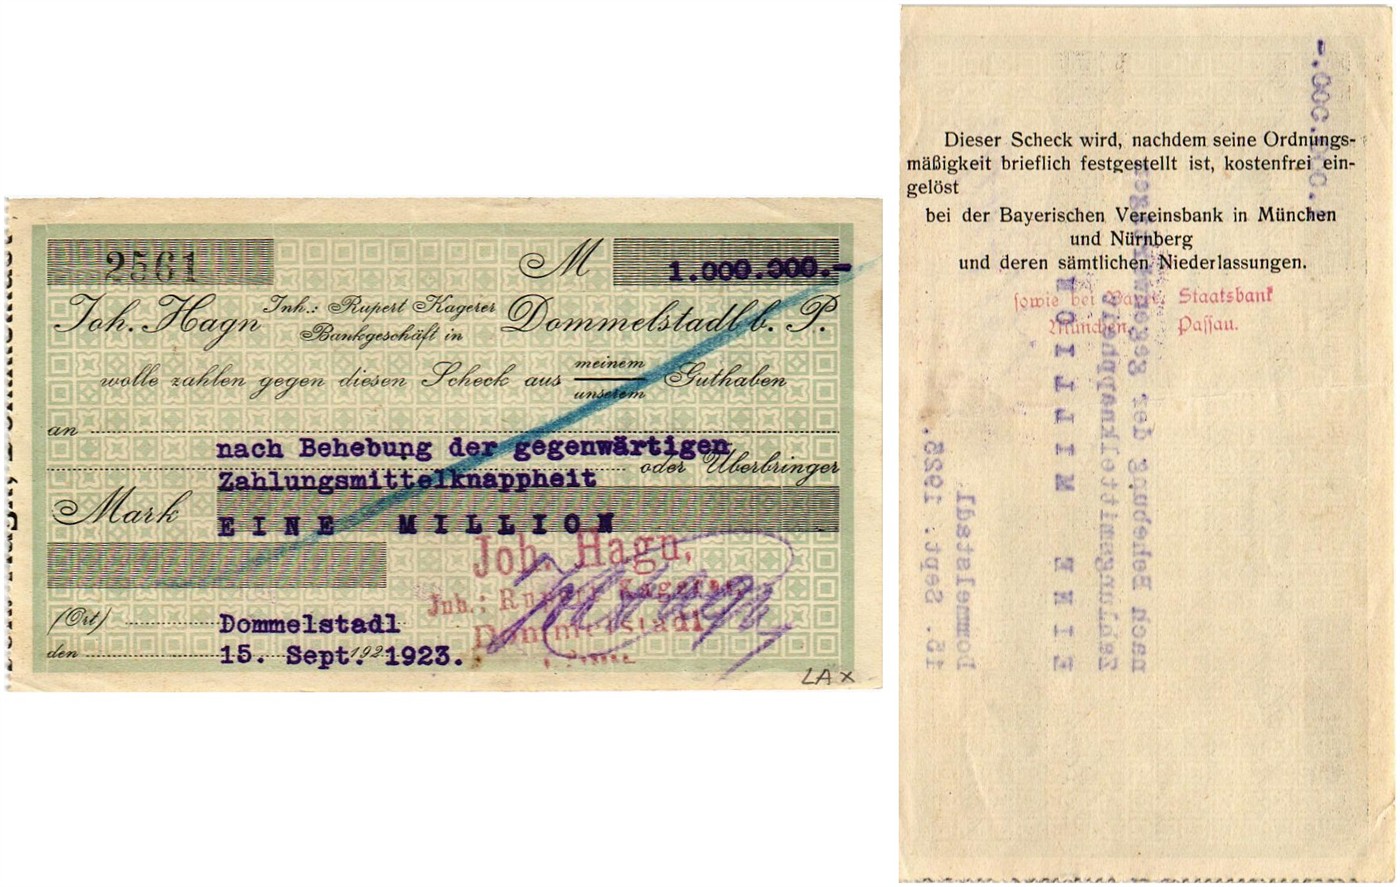 2561
M 1.000.000.-
Joh. Hagn Inh.: Rupert Kagerer Dommelstadl b. P.
Bankgeschäft in
wolle zahlen gegen diesen Scheck aus meinem Guthaben
unserem
an
nach Behebung der gegenwärtigen
oder Überbringer
Zahlungsmittelknappheit
Mark EINE MILLION
Joh. Hagn,
Inh.: Rupert Kagerer
Dommelstadl
(Ort) Dommelstadl
den 15. Sept. 192 1923.
LAX
Dieser Scheck wird, nachdem seine Ordnungs-
mäßigkeit brieflich festgestellt ist, kostenfrei ein-
gelöst
bei der Bayerischen Vereinsbank in München
und Nürnberg
und deren sämtlichen Niederlassungen.
sowie bei Bayer. Staatsbank
München, Passau.